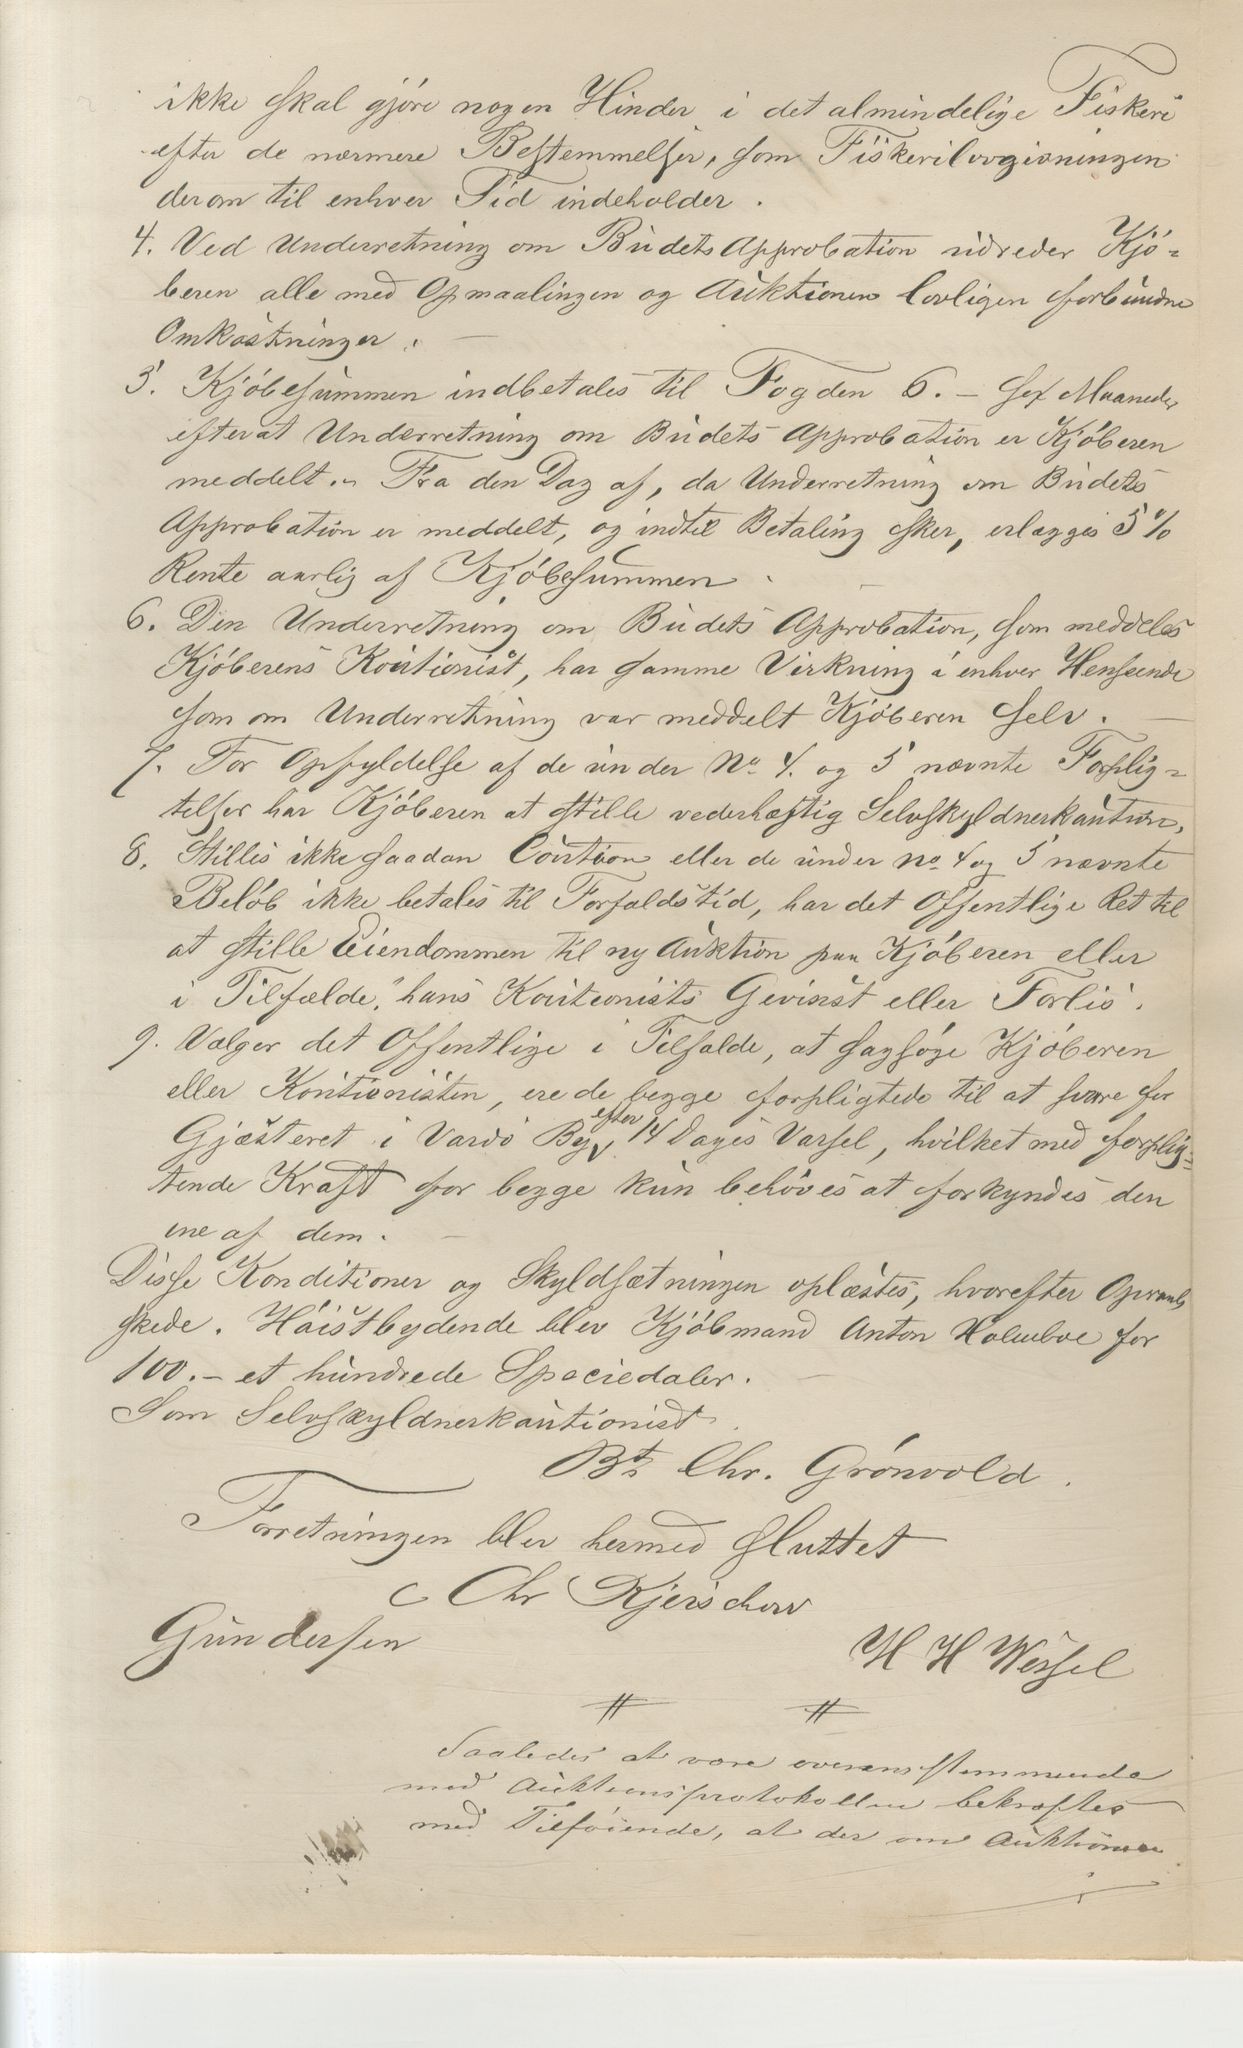 ikke skal gjöre nogen Hinder i det almindelige Fiskeri
efter de nærmere Bestemmelser, som Fiskerilovgivningen
derom til enhver Tid indeholder.
4. Ved Underretning om Budets Approbation udreder Kjö-
beren alle med Opmaalingen og Auktionen lovligen forbundne
Omkostninger. —
5. Kjöbesummen indbetales til Fogden 6. – sex Maaneder
efterat Underretning om Budets Approbation er Kjöberen
meddelt. – Fra den Dag af, da Underretning om Budets
Approbation er meddelt, og indtil Betaling sker, erlægges 5 %
Rente aarlig af Kjöbesummen.
6. Den Underretning om Budets Approbation, som meddeles
Kjöberens Kautionist, har samme Virkning i enhver Henseende
som om Underretning var meddelt Kjöberen selv. —
7. For Opfyldelse af de under No 4. og 5 nævnte Forplig-
telser har Kjöberen at stille vederhæftig Selvskyldnerkaution.
8. Stilles ikke saadan Caution eller de under No 4 og 5 nævnte
Belöb ikke betales til Forfaldstid, har det Offentlige Ret til
at stille Eiendommen til ny Auktion paa Kjöberen eller
i Tilfælde, hans Kautionists Gevinst eller Forlis.
9. Vælger det Offentlige i Tilfælde, at sagsöge Kjöberen
eller Kautionisten, ere de begge forpligtede til at svare for
Gjæsteret i Vardö By efter 14 Dages Varsel, hvilket med forplig-
tende Kraft for begge kun behöves at forkyndes den
ene af dem. —
Disse Konditioner og Skyldsætningen oplæstes, hvorefter Opraab
skede. Höistbydende blev Kjöbmand Anton Holmboe for
100. – et hundrede Speciedaler. —
Som Selvskyldnerkautionist
Bt. Chr. Grönvold.
Forretningen blev hermed sluttet
Chr Kjerschow
Gundersen
H H Wessel
Saaledes at være overensstemmende
med Auktionsprotokollen bekræftes
med Tilföiende, at der om Auktionen